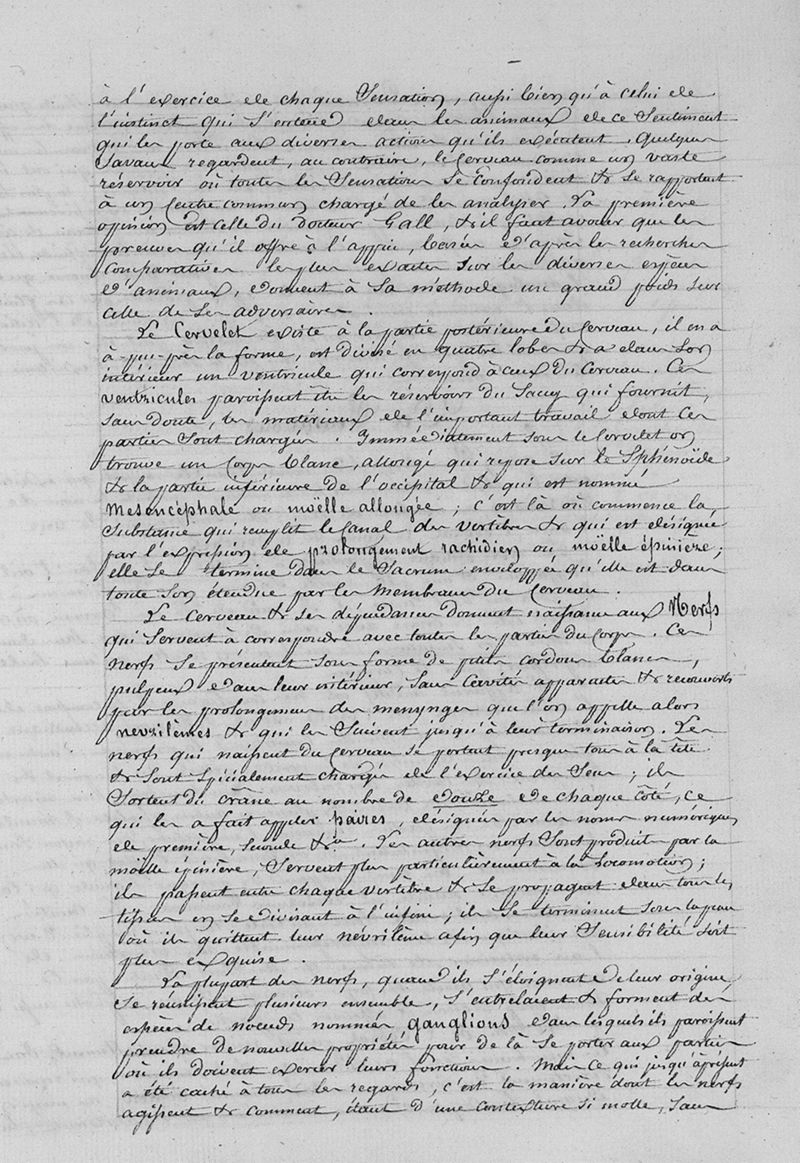 à l'exercice de chaque Sensation, aussi bien qu'à celui de
l'instinct qui s'entend dans les animaux de ce Sentiment
qui les porte aux diverses actions qu'ils exécutent. Quelques
Savans regardent, au contraire, le Cerveau comme un vaste
réservoir où toutes les Sensations se confondent & se rapportent
à un Centre commun chargé de les analyser. La première
opinion est celle du docteur Gall, & il faut avouer que les
preuves qu'il offre à l'appui, basées d'après les recherches
Comparatives les plus exactes Sur les diverses espèces
d'animaux, donnent à Sa méthode un grand poids sur
celle de Ses adversaires.
Le Cervelet existe à la partie postérieure du Cerveau, il en a
à-peu-près la forme, est divisé en quatre lobes & a dans Son
intérieur un Ventricule qui correspond à ceux du Cerveau. Ces
ventricules paroissent être les réservoirs du Sang qui fournit,
sans doute, les matériaux de l'important travail dont Ces
parties Sont chargées. Immédiatement sous le Cervelet on
trouve un Corps blanc, allongé qui repose sur le Sphénoïde
& la partie inférieure de l'occipital & qui est nommé
Mesencéphale ou moëlle allongée; c'est là où commence la
Substance qui remplit le Canal des Vertèbres & qui est désignée
par l'expression de prolongement rachidien ou moëlle épinière;
elle Se termine dans le Sacrum enveloppée qu'elle est dans
toute Son étendue par les Membranes du Cerveau.
Le Cerveau & ses dépendances donnent naissance aux Nerfs
qui Servent à correspondre avec toutes les parties du Corps. Ces
nerfs Se présentent Sous forme de petits cordons blancs,
pulpeux dans leur intérieur, Sans Cavités apparentes & recouverts
par les prolongemens des menynges que l'on appelle alors
nevrilêmes & qui les Suivent jusqu'à leur terminaison. Les
nerfs qui naissent du Cerveau se portent presque tous à la tête
& Sont Spécialement chargés de l'exercice des Sens; ils
Sortent du crâne au nombre de douze de chaque Côté, ce
qui les a fait appeler paires, désignées par les noms numériques
de première, seconde &ca. Les autres nerfs Sont produits par la
moëlle épinière, Servent plus particulièrement à la locomotion;
ils passent entre chaque vertèbre & Se propagent dans tous les
tissus en se divisant à l'infini; ils Se terminent sous la peau
où ils quittent leur névrilême afin que leur Sensibilité soit
plus exquise.
La plupart des nerfs, quand ils s'éloignent de leur origine,
Se réunissent plusieurs ensemble, s'entrelacent & forment des
espèces de noeuds nommés ganglions dans lesquels ils paroissent
prendre de nouvelles propriétés, pour de là Se porter aux parties
où ils doivent exercer leurs fonctions. Mais ce qui jusqu'à présent
a été caché à tous les regards, c'est la manière dont les nerfs
agissent & comment, étant d'une contexture si molle, sans